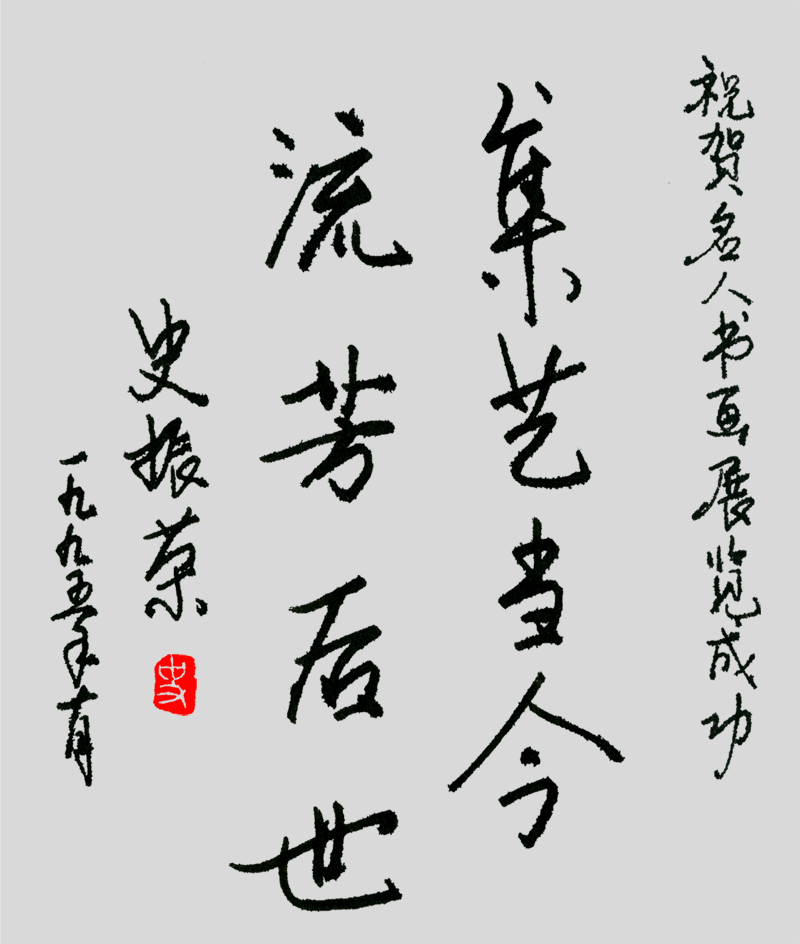 祝賀名人书画展览成功
集艺当今
流芳后世
史振荣
一九九五年十月
史